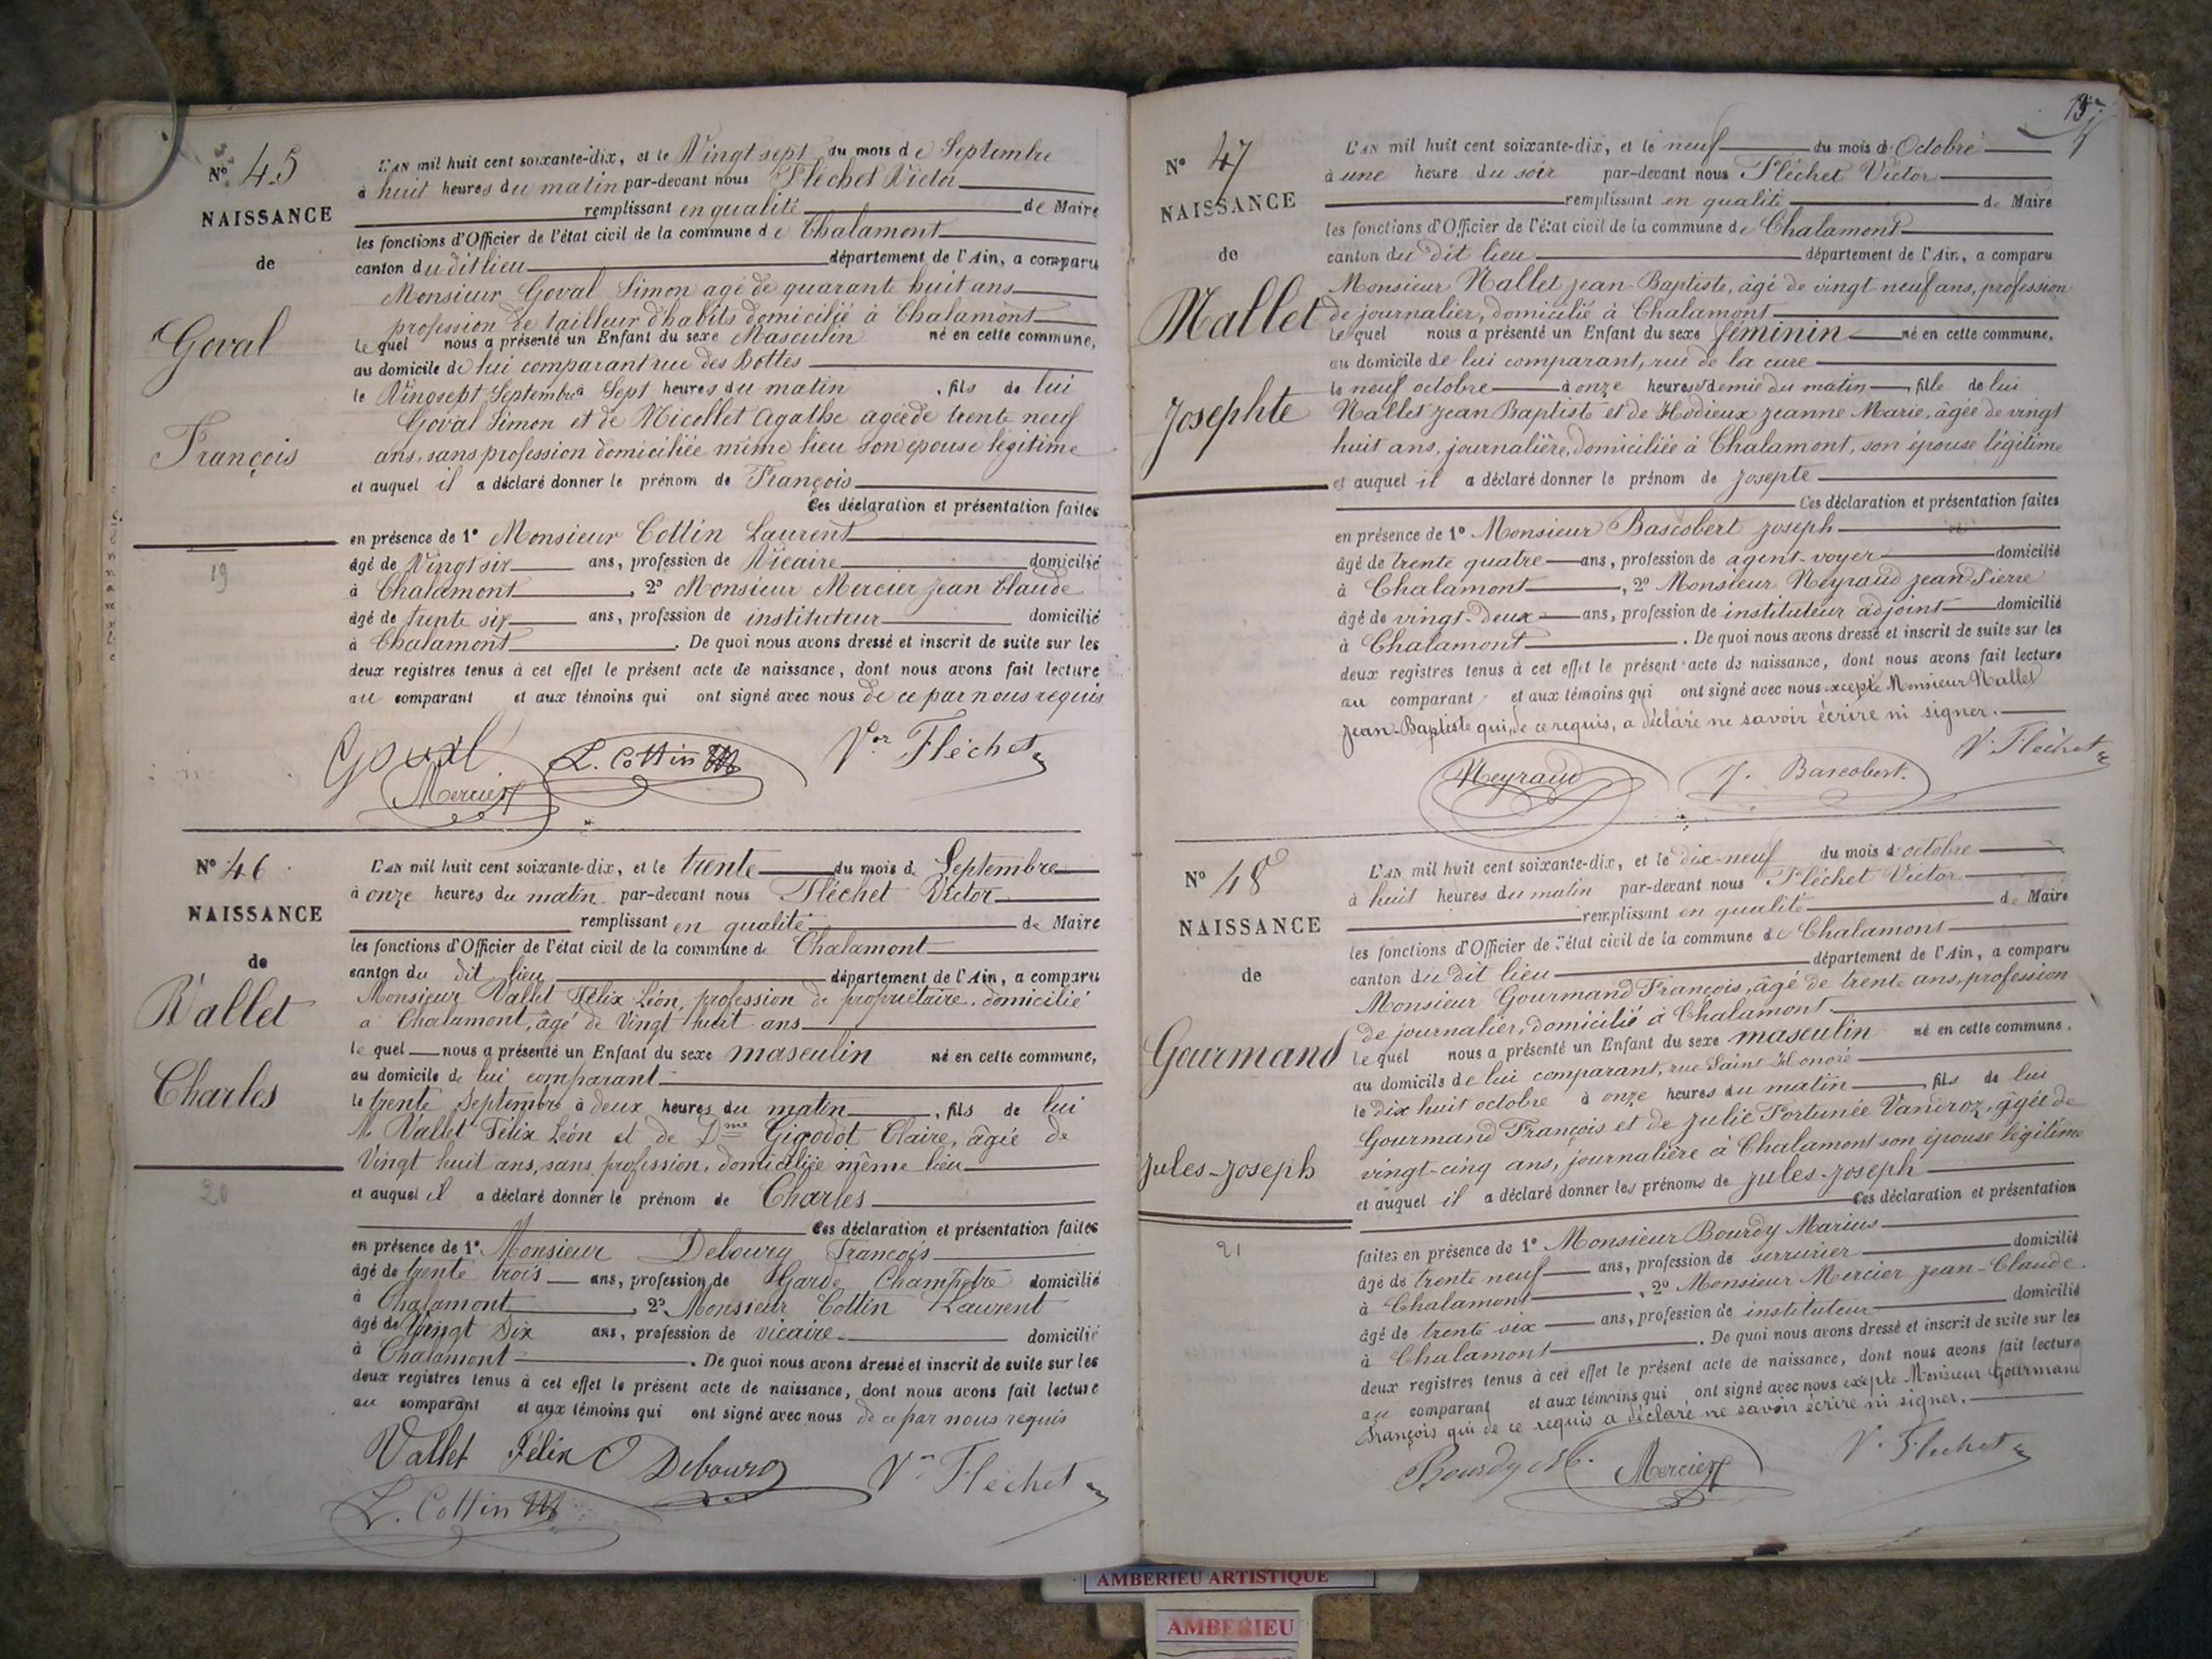 N° 45
NAISSANCE
de
Goval
François
19
L'AN mil huit cent soixante-dix, et le Vingt sept du mois de Septembre
à huit heures du matin par-devant nous Fléchet Victor
remplissant en qualité de Maire
les fonctions d'Officier de l'état civil de la commune de Chalamont
canton du dit lieu département de l'Ain, a comparu
Monsieur Goval Simon agé de quarante huit ans
profession de tailleur d'habits domicilié à Chalamont
le quel nous a présenté un Enfant du sexe Masculin né en cette commune,
au domicile de lui comparant rue des Bottes
le Vingsept Septembre à Sept heures du matin, fils de lui
Goval Simon et de Nicollet Agathe agée de trente neuf
ans, sans profession domiciliée même lieu son épouse légitime
et auquel il a déclaré donner le prénom de François
Ces déclaration et présentation faites
en présence de 1° Monsieur Cottin Laurent
âgé de Vingt six ans, profession de Vicaire domicilié
à Chalamont, 2° Monsieur Mercier Jean Claude
âgé de trente six ans, profession de instituteur domicilié
à Chalamont. De quoi nous avons dressé et inscrit de suite sur les
deux registres tenus à cet effet le présent acte de naissance, dont nous avons fait lecture
au comparant et aux témoins qui ont signé avec nous de ce par nous requis
L. Cottin Vor Fléchet
Mercier
N° 46
NAISSANCE
de
Vallet
Charles
20
L'AN mil huit cent soixante-dix, et le trente du mois de Septembre
à onze heures du matin par-devant nous Fléchet Victor
remplissant en qualité de Maire
les fonctions d'Officier de l'état civil de la commune de Chalamont
canton du dit lieu département de l'Ain, a comparu
Monsieur Vallet Félix Léon, profession de propriétaire, domicilié
à Chalamont, âgé de Vingt huit ans
le quel nous a présenté un Enfant du sexe masculin né en cette commune,
au domicile de lui comparant
le trente Septembre à deux heures du matin, fils de lui
M Vallet Félix Léon et de Dme Gigodot Claire, âgée de
Vingt huit ans, sans profession, domiciliée même lieu
et auquel il a déclaré donner le prénom de Charles
Ces déclaration et présentation faites
en présence de 1° Monsieur Debourg François
âgé de trente trois ans, profession de Garde Champêtre domicilié
à Chalamont, 2° Monsieur Cottin Laurent
âgé de Vingt Dix ans, profession de vicaire domicilié
à Chalamont. De quoi nous avons dressé et inscrit de suite sur les
deux registres tenus à cet effet le présent acte de naissance, dont nous avons fait lecture
au comparant et aux témoins qui ont signé avec nous de ce par nous requis
Vallet Félix Debourg Vr Fléchet
L. Cottin
N° 47
NAISSANCE
de
Nallet
Josephte
L'AN mil huit cent soixante-dix, et le neuf du mois d'Octobre
à une heure du soir par-devant nous Fléchet Victor
remplissant en qualité de Maire
les fonctions d'Officier de l'état civil de la commune de Chalamont
canton du dit lieu département de l'Ain, a comparu
Monsieur Nallet Jean-Baptiste, âgé de vingt-neuf ans, profession
de journalier, domicilié à Chalamont
le quel nous a présenté un Enfant du sexe féminin né en cette commune,
au domicile de lui comparant, rue de la cure
le neuf octobre à onze heures et demie du matin, fille de lui
Nallet Jean Baptiste et de Hodieux Jeanne Marie, âgée de vingt
huit ans, journalière, domiciliée à Chalamont, son épouse légitime
et auquel il a déclaré donner le prénom de Josepte
Ces déclaration et présentation faites
en présence de 1° Monsieur Bascobert Joseph
âgé de trente quatre ans, profession de agent-voyer domicilié
à Chalamont, 2° Monsieur Neyraud Jean Pierre
âgé de vingt-deux ans, profession de instituteur adjoint domicilié
à Chalamont. De quoi nous avons dressé et inscrit de suite sur les
deux registres tenus à cet effet le présent acte de naissance, dont nous avons fait lecture
au comparant et aux témoins qui ont signé avec nous excepté Monsieur Nallet
Jean-Baptiste qui, de ce requis, a déclaré ne savoir écrire ni signer.
V. Fléchet
Neyraud J. Barcobert.
N° 48
NAISSANCE
de
Gourmand
Jules-Joseph
21
L'AN mil huit cent soixante-dix, et le dix-neuf du mois d'octobre
à huit heures du matin par-devant nous Fléchet Victor
remplissant en qualité de Maire
les fonctions d'Officier de l'état civil de la commune de Chalamont
canton du dit lieu département de l'Ain, a comparu
Monsieur Gourmand François, âgé de trente ans, profession
de journalier, domicilié à Chalamont
le quel nous a présenté un Enfant du sexe masculin né en cette commune,
au domicile de lui comparant, rue Saint Honoré
le dix huit octobre à onze heures du matin, fils de lui
Gourmand François et de Julie Fortunée Vandroz, âgée de
vingt-cinq ans, journalière à Chalamont son épouse légitime
et auquel il a déclaré donner les prénoms de Jules-Joseph
Ces déclaration et présentation
faites en présence de 1° Monsieur Bourdy Marius
âgé de trente neuf ans, profession de serrurier domicilié
à Chalamont, 2° Monsieur Mercier Jean-Claude
âgé de trente six ans, profession de instituteur domicilié
à Chalamont. De quoi nous avons dressé et inscrit de suite sur les
deux registres tenus à cet effet le présent acte de naissance, dont nous avons fait lecture
au comparant et aux témoins qui ont signé avec nous excepté Monsieur Gourmand
François qui de ce requis a déclaré ne savoir écrire ni signer.
Bourdy M. Mercier V. Fléchet
AMBERIEU ARTISTIQUE
AMBERIEU